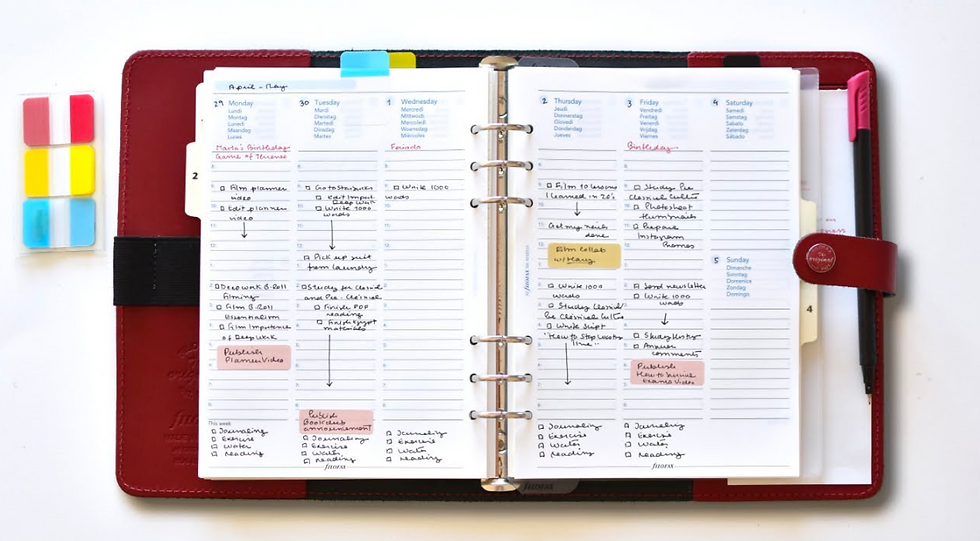 April - May
29 Monday
Lundi
Montag
Lunes
Maandag
Lunes
Marta's Birthday
Game of Thrones
Film planner
video
Edit planner
video
Deep Work B-Roll
Filming
Film B-Roll
Essentialism
Film Importance
of Deep Work
Publish
Planner Video
This week
Journaling
Exercise
Water
Reading
30 Tuesday
Mardi
Dienstag
Martedì
Dinsdag
Martes
Go to Starbucks
Edit Import.
Deep Work
Write 1000
words
Pick up suit
from laundry
Study for Classical
and Pre-Classical
Finish PDF
reading
Finish Egypt
materials
Publish
Bookclub
announcement
Journaling
Exercise
Water
Reading
filofax
1 Wednesday
Mercredi
Mittwoch
Mercoledì
Woensdag
Miércoles
Feriado
Write 1000
words
Journaling
Exercise
Water
Reading
2 Thursday
Jeudi
Donnerstag
Giovedì
Donderdag
Jueves
Film 10 Lessons
I learned in 20's
Get my nails
done
Film Collab
w/
Write 1000
words
Study Classical
Pre Classical Cultures
Write Script
"How to Stop Wasting
time"
Journaling
Exercise
Water
Reading
3 Friday
Vendredi
Freitag
Venerdì
Vrijdag
Viernes
Birthday
Study Pre
Classical Cultures
Photoshoot
thumbnails
Prepare
Instagram
Promos
Send newsletter
Write 1000
words
Study History
Answer
comments
Publish
How to Survive
Exams Video
Journaling
Exercise
Water
Reading
filofax
4 Saturday
Samedi
Samstag
Sabato
Zaterdag
Sábado
5 Sunday
Dimanche
Sonntag
Domenica
Zondag
Domingo
2
4
The
Original
filofax